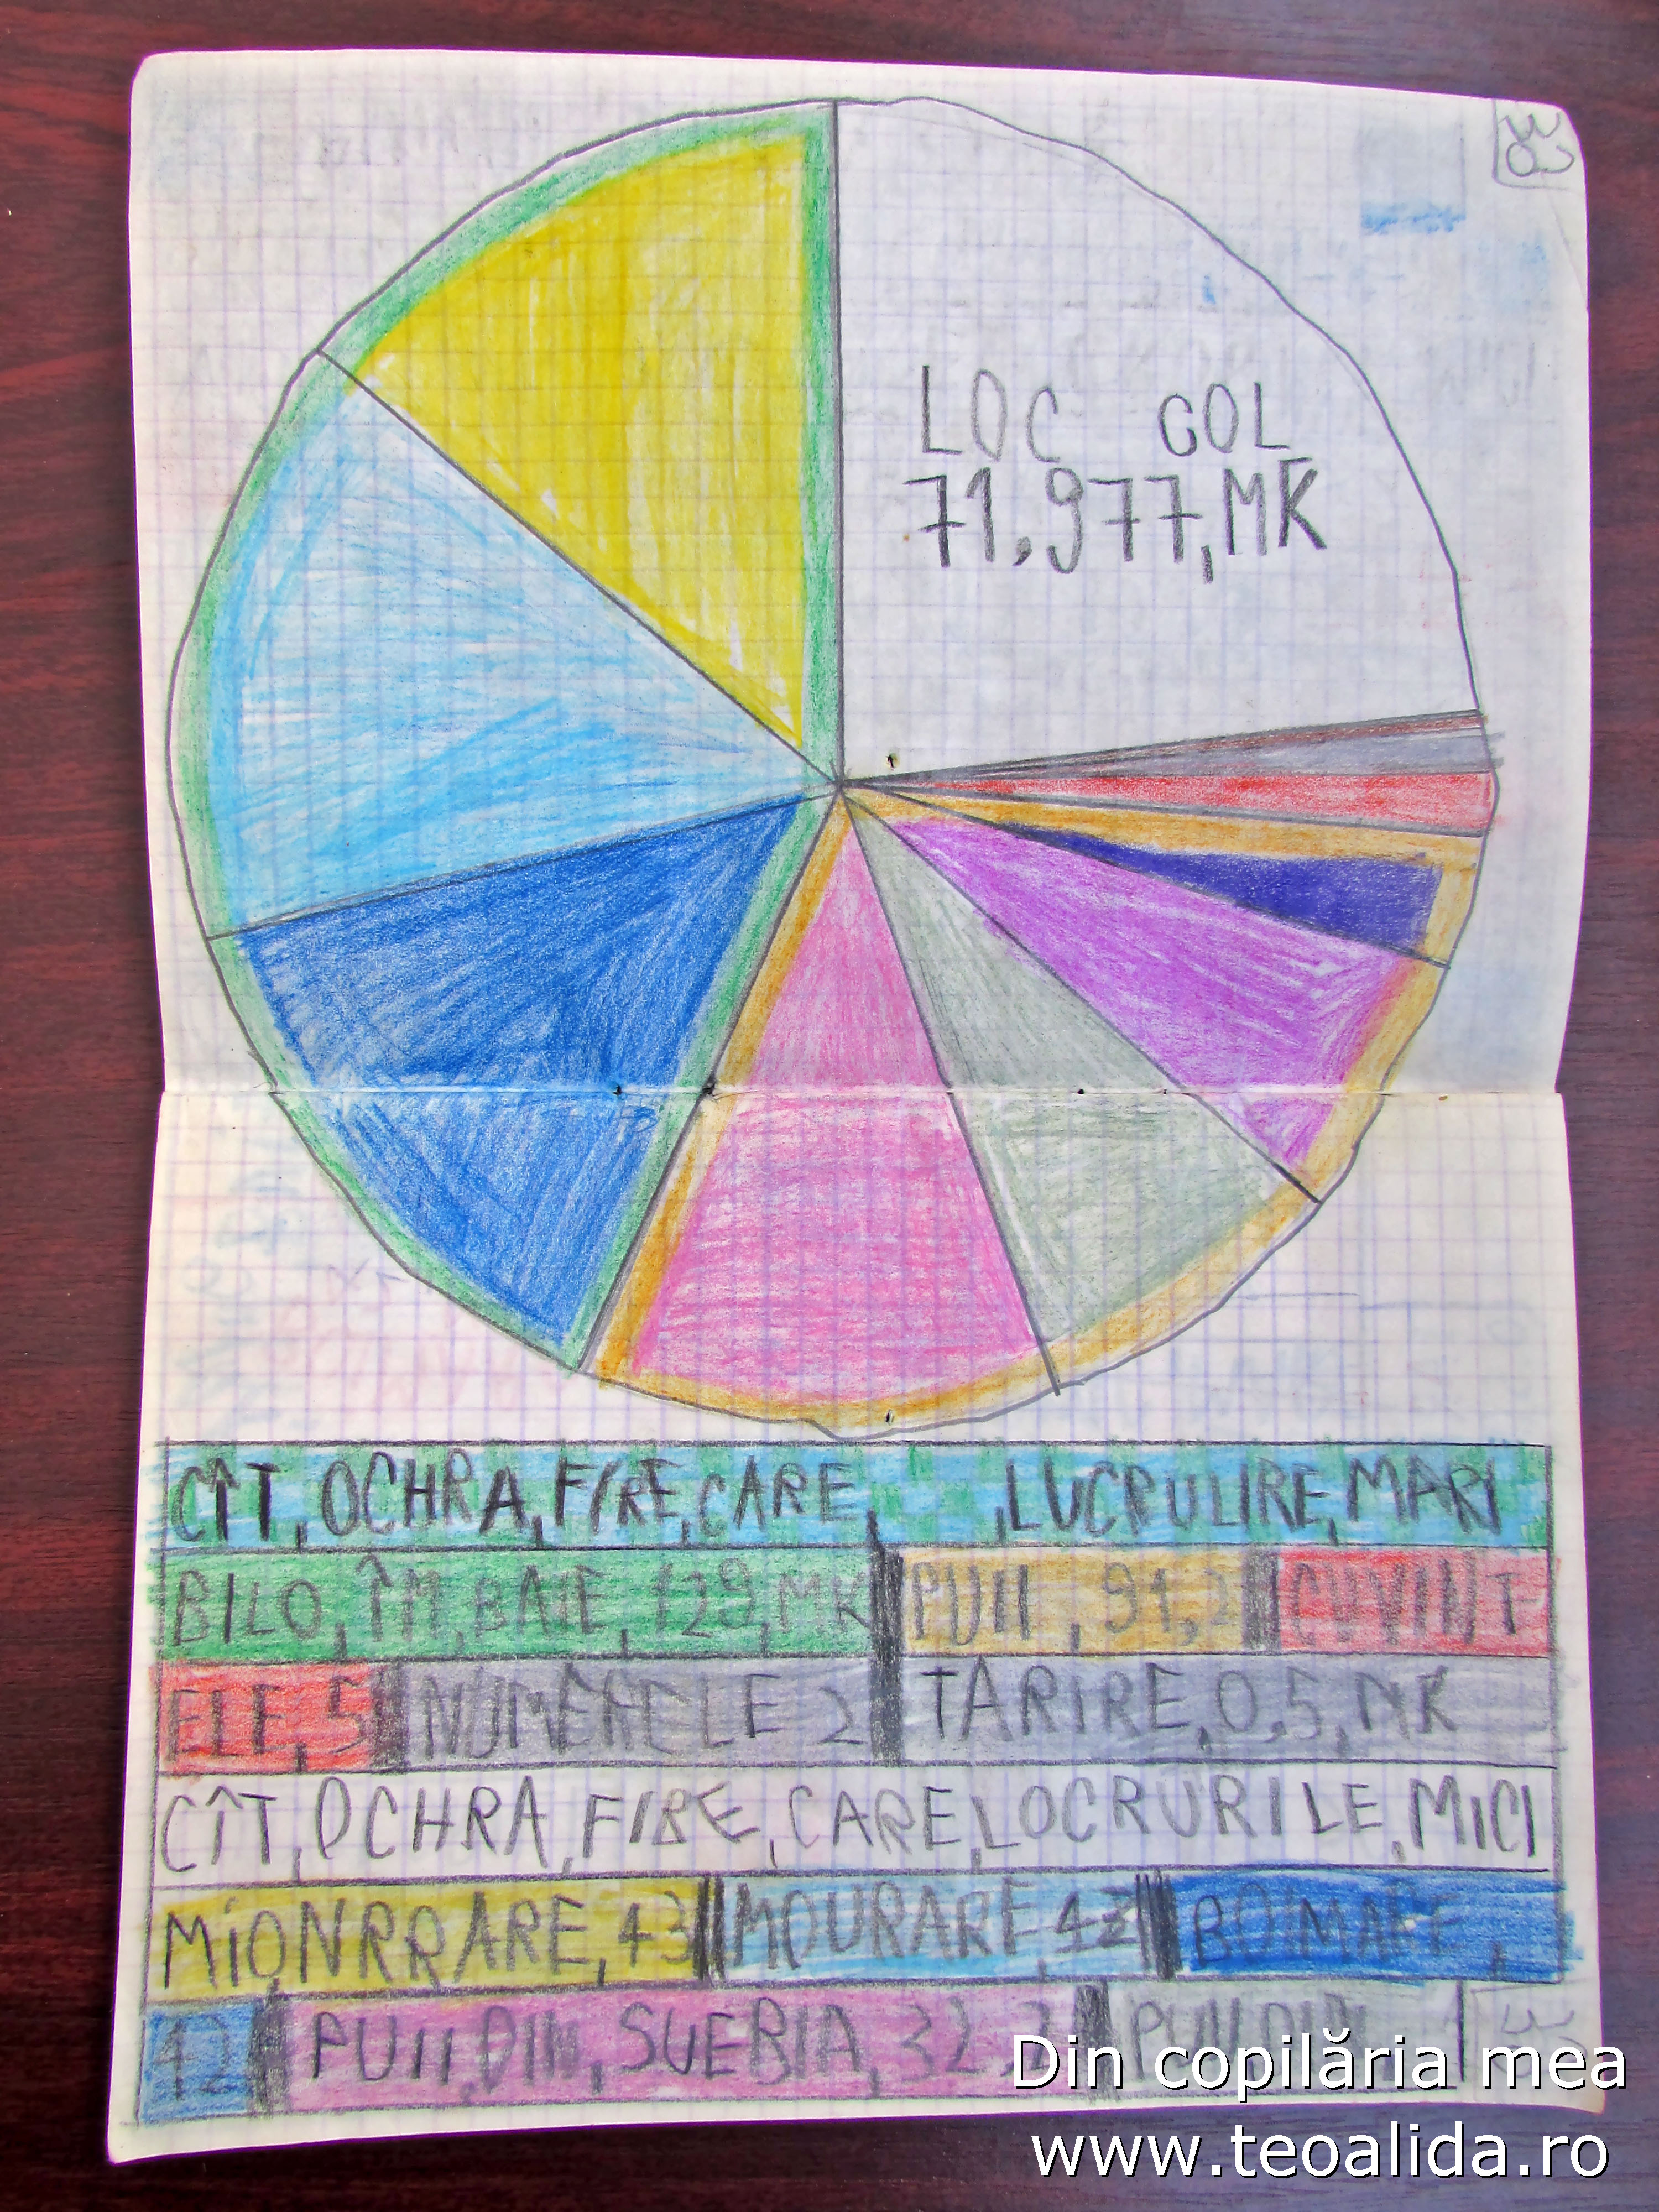 LOC COL
71,977,MK
CÎT,OCHRA,FIRE,CARE, ,LUCRULIRE,MARI
BILO,ÎM,BAIE,129,MK PUII,91,2 CUVINT
ELE,5 NUMERELE 2 TARIRE,0,5,MK
CÎT,OCHRA,FIRE,CARE,LOCRURILE,MICI
MIONRRARE,43 MOURARE,42
42 PUII,DIN,SUEBIA,32,
Din copilăria mea
www.teoalida.ro